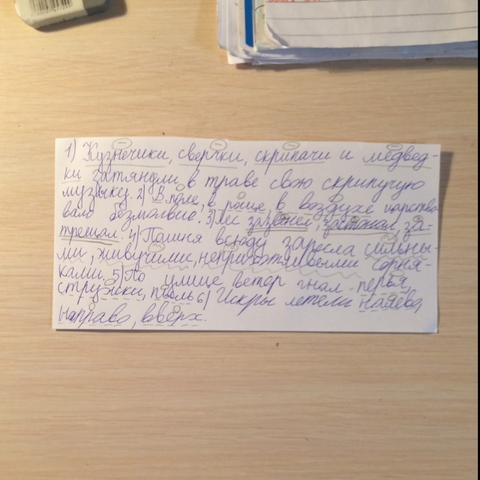 1) Кузнечики, сверчки, скрипачи и медвед-
ки затянули в траве свою скрипучую
музыку. 2) В поле, в роще, в воздухе царство-
вало безмолвие. 3) Лес зазвенел, застонал, за-
трещал. 4) Пашня всюду заросла сильны-
ми, живучими, неприхотливыми сорня-
ками. 5) По улице ветер гнал перья,
стружки, пыль 6) Искры летели налево,
направо, вверх.